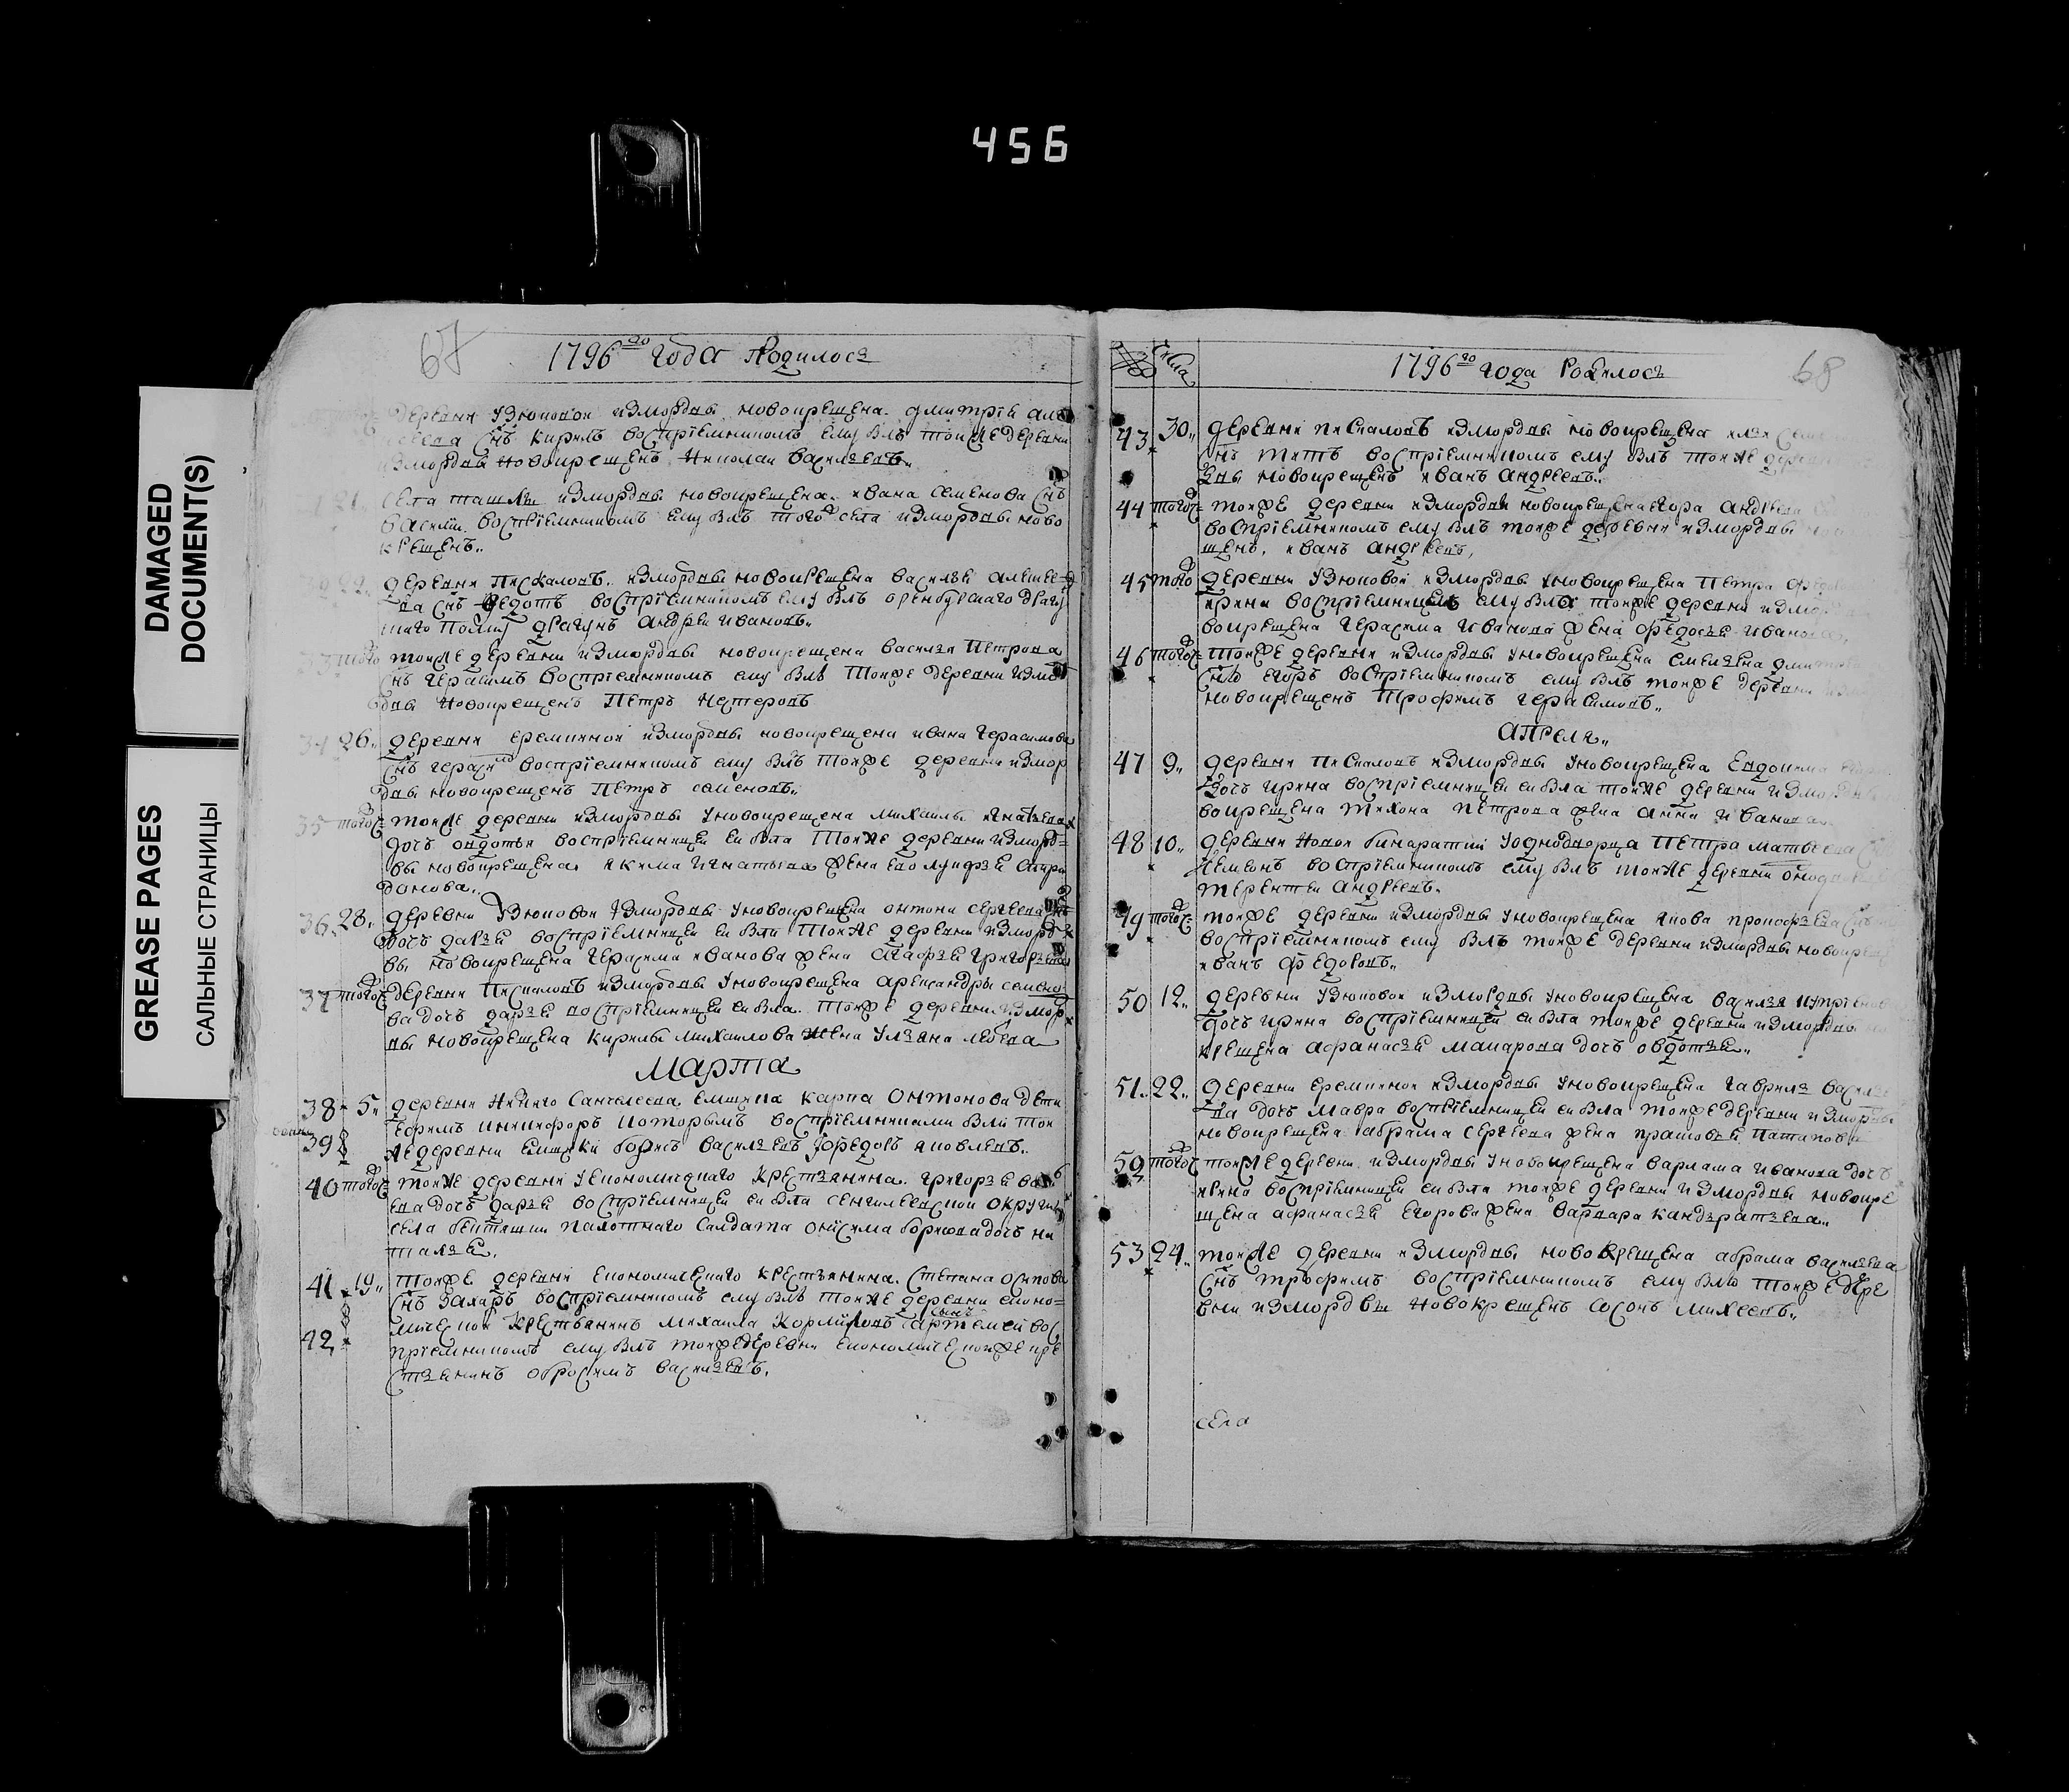 456
DAMAGED
DOCUMENT(S)
GREASE PAGES
САЛЬНЫЕ СТРАНИЦЫ
67
1796го года Родилося
деревни Узюковой измордвы новокрещена Дмитрия
снъ Кирилъ восприемникомъ ему былъ тойже деревни
измордвы новокрещенъ Николай Васильевъ
21 села Ташлы измордвы новокрещена Ивана Семенова снъ
Василий восприемникомъ ему былъ тогож села измордвы ново
крещенъ
22 деревни Пискаловъ измордвы новокрещена Василья Алексее
ва снъ Федотъ восприемникомъ ему былъ оренбургскаго драгу
полку драгунъ Андрей Ивановъ
того тойже деревни измордвы новокрещена Василья Петрова
снъ Герасимъ восприемникомъ ему былъ тойже деревни измо
двы новокрещенъ Петръ Нестеровъ
34 26 деревни Еремкиной измордвы новокрещена Ивана Герасимова
снъ восприемникомъ ему былъ тойже деревни измор
двы новокрещенъ Петръ Семеновъ
35 тогож тойже деревни измордвы уновокрещена Михайлы Игнатьева
дочь Овдотья восприемницей ей была тойже деревни измордъ
вы новокрещена Якима Игнатьева жена
донова
36 28 деревни Узюковой измордвы уновокрещена Онтона Сергеева
дочь Дарья восприемницей ей была тойже деревни измордъ
вы новокрещена Герасима Иванова жена Агафья Григорьева
37 тогож деревни Пискаловъ измордвы уновокрещена Александры Семено
ва дочь Дарья восприемницей ей была тойже деревни измор
вы новокрещена Кирилы Михайлова жена Ульяна
Марта
38 5 деревни ямщика Карпа Онтонова дети
Ефимъ и Никифоръ и которымъ восприемниками были той
39 же деревни ямщики Борисъ Васильевъ Федоръ Яковлевъ
40 тогож тойже деревни уекономическаго крестьянина Григорья
ева дочь Дарья восприемницей ей была Сенгилеевской округи
села солдата Онисима дочь На
талья
41 19 тойже деревни економическаго крестьянина Степана Осипова
снъ Захаръ восприемникомъ ему былъ тойже деревни еконо
мической крестьянинъ Михаила Корниловъ сынъ Артемей вос
42 приемникомъ ему былъ тойже деревни економической же кре
стьянинъ Обросимъ Васильевъ
1796го года Родилось
68
43 30 деревни Пискаловъ измордвы новокрещена Ильи
снъ Титъ восприемникомъ ему былъ тойже
новокрещенъ Иванъ Андреевъ
44 тогож тойже деревни измордвы новокрещена Егора Андреева
восприемникомъ ему былъ тойже деревни измордвы
щенъ Иванъ Андреевъ
45 того деревни Узюковой измордвы уновокрещена Петра
Ирина восприемницей ему была тойже деревни
вокрещена Герасима Иванова жена Федосья
46 тогож тойже деревни измордвы уновокрещена Емельяна
снъ Егоръ восприемникомъ ему былъ тойже деревни
новокрещенъ Трофимъ Герасимовъ
Апреля
47 9 деревни Пискаловъ измордвы уновокрещена Евдокима
дочь Ирина восприемницей ей была тойже деревни
вокрещена Тихона Петрова жена Анна
48 10 деревни Новой уоднодворца Петра Матвеева
Семенъ восприемникомъ ему былъ тойже деревни
Терентий Андреевъ
49 тогож тойже деревни измордвы уновокрещена Якова Прокофьева снъ
восприемникомъ ему былъ тойже деревни измордвы новокрещ
Иванъ Федоровъ
50 12 деревни Узюковой измордвы уновокрещена Василья
дочь Ирина восприемницей ей была тойже деревни измордвы
крещена Афанасья Макарова дочь Овдотья
51 22 деревни Еремкиной измордвы уновокрещена Гаврила Василье
ва дочь Мавра восприемницей ей была тойже деревни измордвы
новокрещена Абрама Сергеева жена Прасковья Потапова
52 тогож тойже деревни измордвы уновокрещена Варлама Иванова дочь
Ирина восприемницей ей была тойже деревни измордвы новокре
щена Афанасья Егорова жена Варвара Кандратьева
53 24 тойже деревни измордвы новокрещена Абрама Васильева
снъ Трофимъ восприемникомъ ему былъ тойже дере
вни измордвы новокрещенъ Созонъ Михеевъ
села